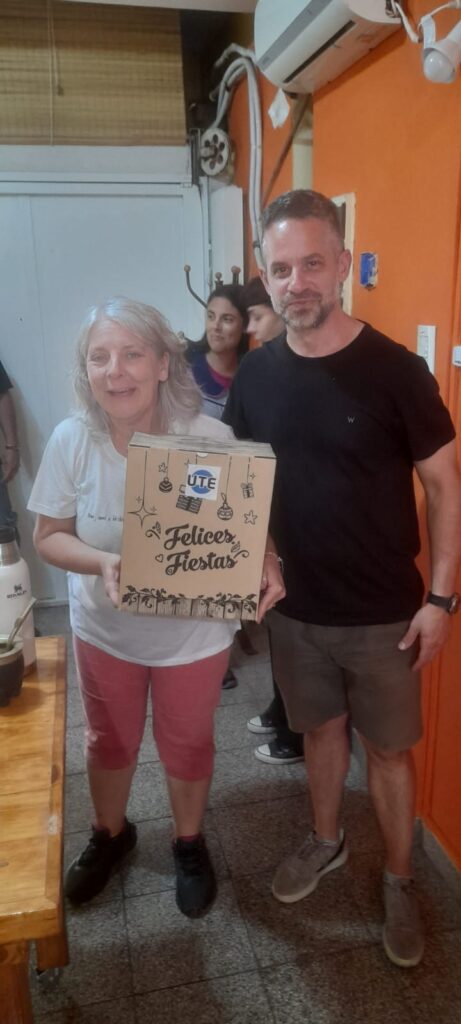 UTE
Felices
Fiestas
W
STANLEY